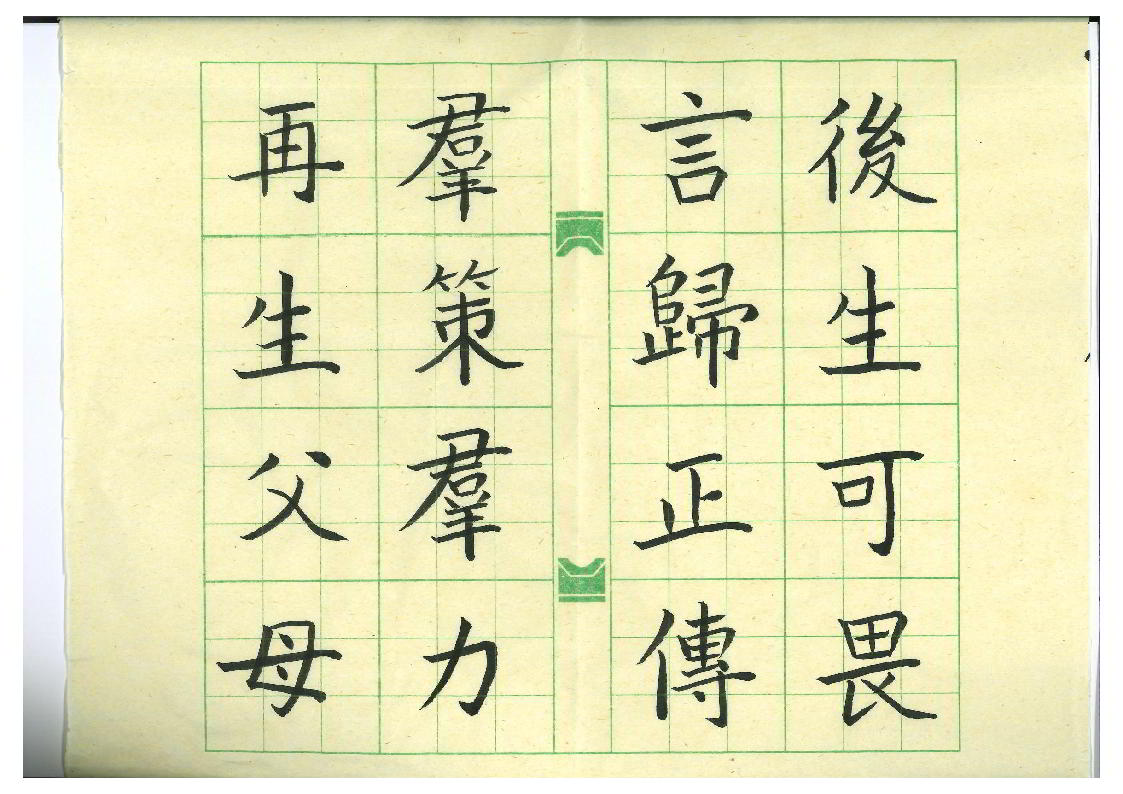 後生可畏
言歸正傳
羣策羣力
再生父母